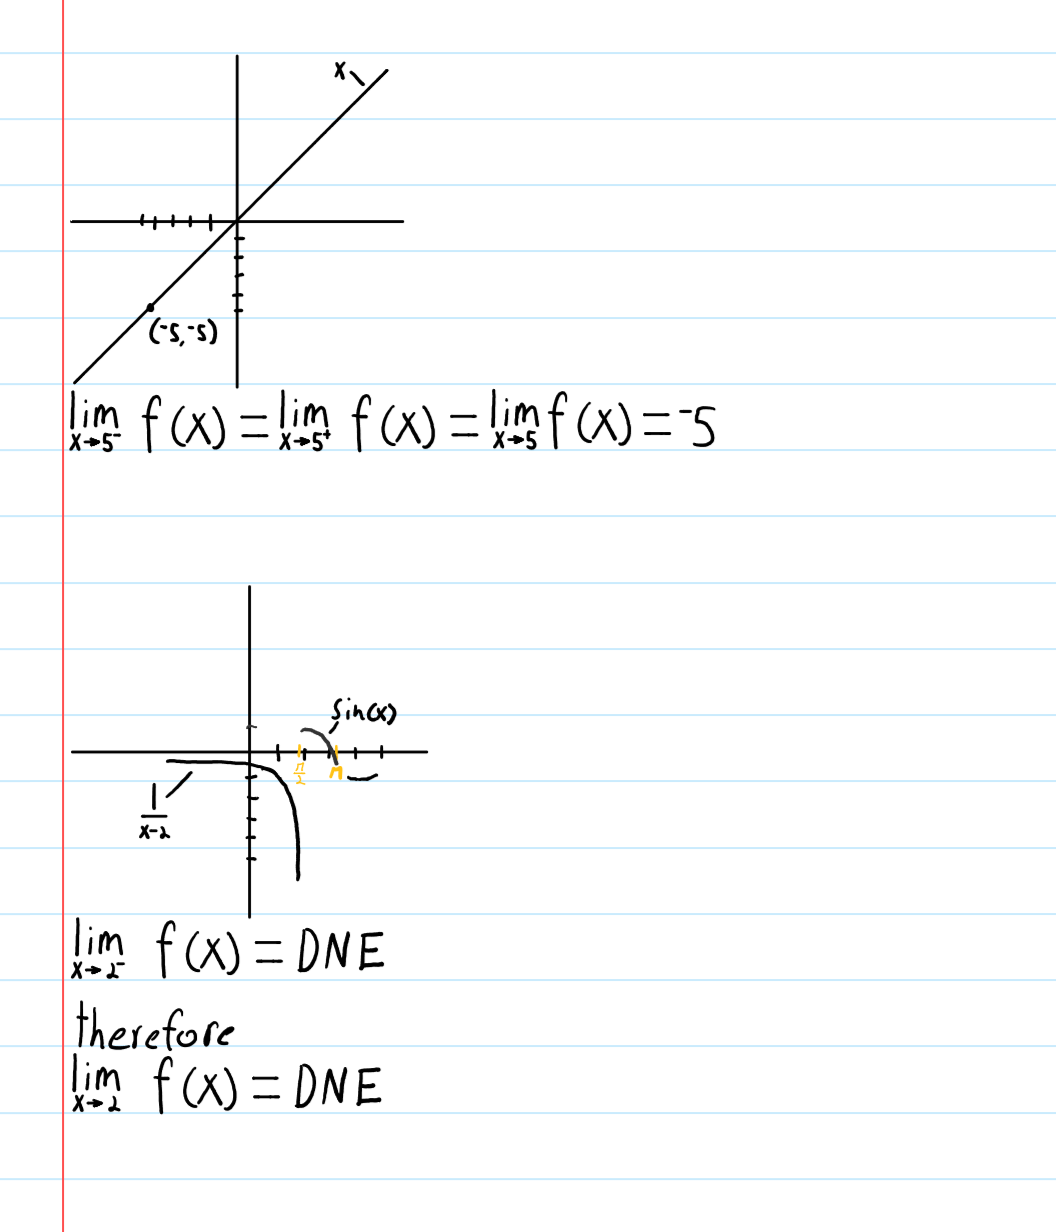 x
(-5,-5)
lim x→5⁻ f(x) = lim x→5⁺ f(x) = lim x→5 f(x) = -5
sin(x)
π/2 π
1/(x-2)
lim x→2⁻ f(x) = DNE
therefore
lim x→2 f(x) = DNE